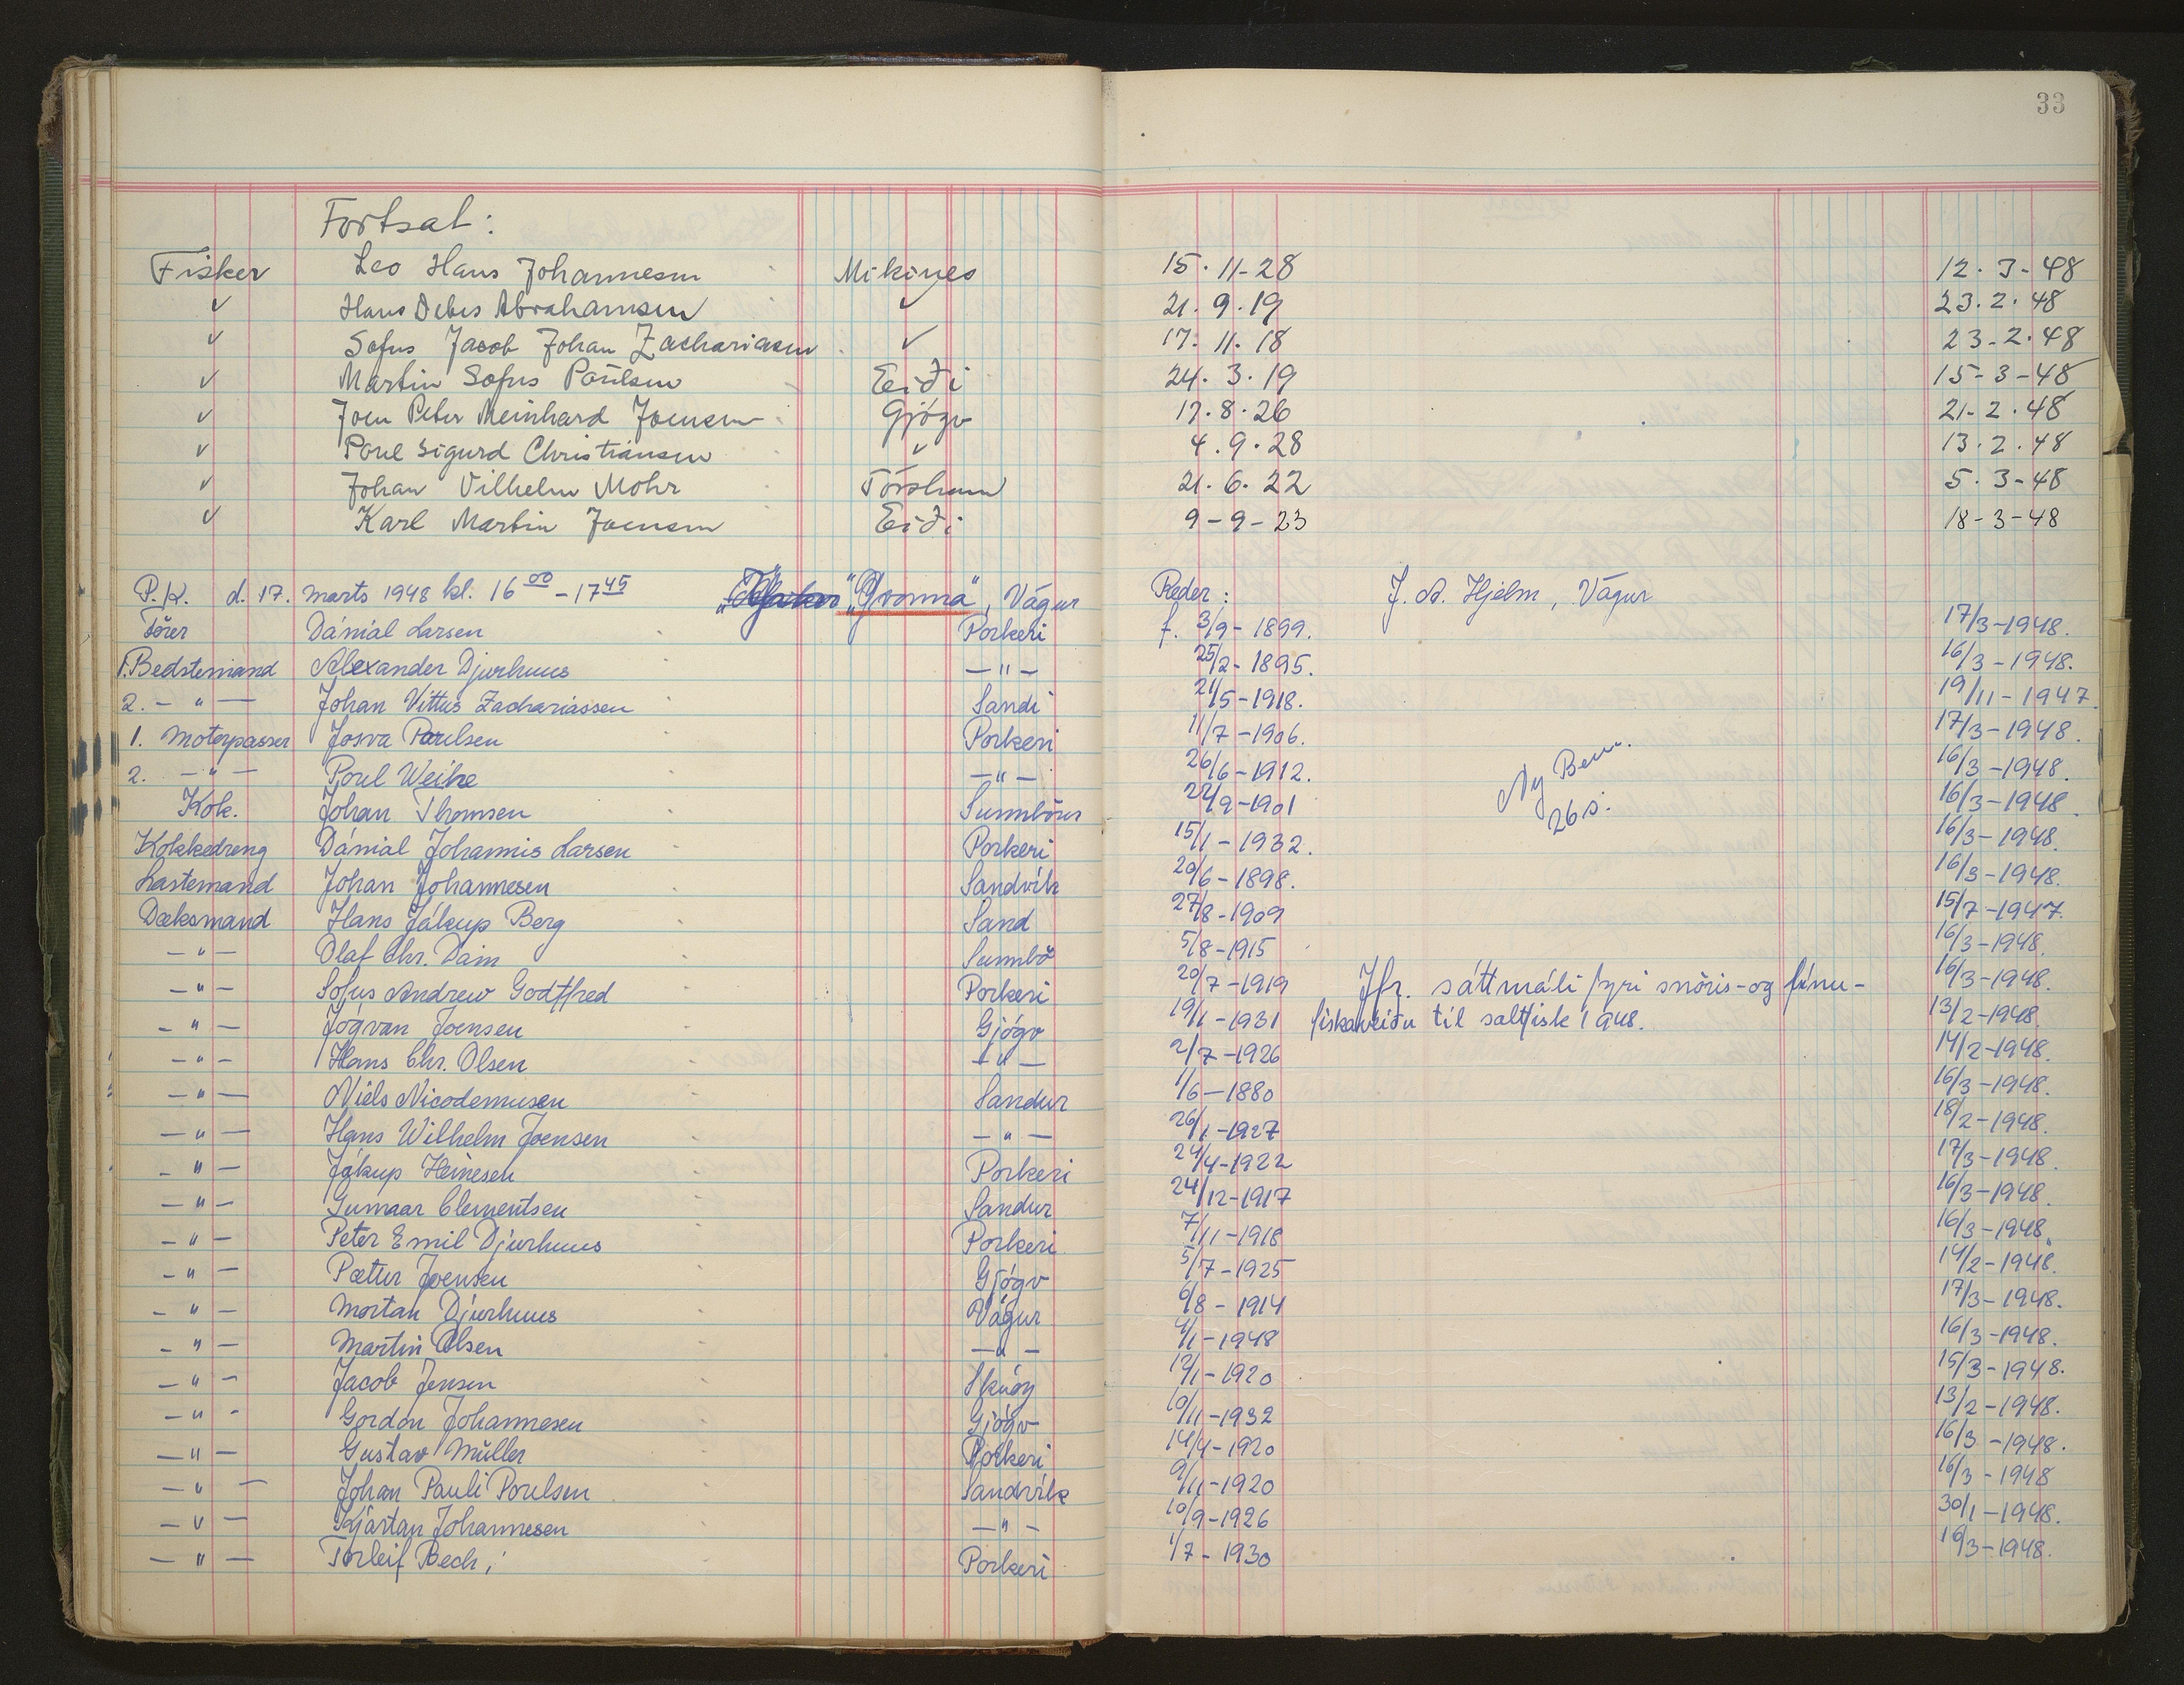 33
Fortsat:
Fisker Leo Hans Johannesen Mikines 15. 11-28 12. 3-48
✓ Hans Debes Abrahamsen ✓ 21. 9. 19 23. 2. 48
✓ Sofus Jacob Johan Zachariasen ✓ 17. 11. 18 23-2. 48
✓ Martin Sofus Poulsen Eiði 24. 3. 19 15-3-48
✓ Joen Peter Meinhard Joensen Gjógv 17. 8. 26 21-2. 48
✓ Poul Sigurd Christiansen ✓ 4. 9. 28 13. 2. 48
✓ Johan Vilhelm Mohr Tórshavn 21. 6. 22 5. 3-48
✓ Karl Martin Joensen Eiði 9-9-23 18-3-48
P.K. d. 17. marts 1948 kl. 16 00 - 17 45 "Yvonna", Vágur Reder: J. A. Hjelm, Vágur
Förer Dánial Larsen Porkeri f. 3/9-1899. 17/3-1948.
1. Bedstemand Alexander Djurhuus -"- 25/2-1895. 16/3-1948.
2. -"- Johan Vittus Zachariassen Sandi 21/5-1918. 19/11-1947.
1. Motorpasser Josva Poulsen Porkeri 11/7-1906. 17/3-1948.
2. -"- Poul Weihe -"- 26/6-1912. Ny Bem. 16/3-1948.
Kok. Johan Thomsen Sumbour 22/9-1901 26 s. 16/3-1948.
Kokkedreng Dánial Johannis Larsen Porkeri 15/1-1932. 16/3-1948.
Lastemand Johan Johannesen Sandvík 20/6-1898. 16/3-1948.
Dæksmand Hans Jákup Berg Sand 27/8-1909 15/7-1947.
-"- Olaf Chr. Dam Sumbö 5/8-1915 16/3-1948.
-"- Sofus Andrew Godtfred Porkeri 20/7-1919 Jfr. sáttmáli fyri snöris-og línu- 16/3-1948.
-"- Jógvan Joensen Gjógv 19/1-1931 fiskaveiðu til saltfisk 1948. 13/2-1948.
-"- Hans Chr. Olsen -"- 2/7-1926 14/2-1948.
-"- Niels Nicodemusen Sandur 1/6-1880 16/3-1948.
-"- Hans Wilhelm Joensen -"- 26/1-1927 18/2-1948.
-"- Jákup Heinesen Porkeri 24/4-1922 17/3-1948.
-"- Gunnar Clementsen Sandur 24/12-1917 16/3-1948.
-"- Peter Emil Djurhuus Porkeri 7/11-1918 16/3-1948.
-"- Pætur Joensen Gjógv 5/7-1925 14/2-1948.
-"- Mortan Djurhuus Vágur 6/8-1914 17/3-1948.
-"- Martin Olsen -"- 4/1-1948 16/3-1948.
-"- Jacob Jensen Skúoy 12/1-1920 15/3-1948.
-"- Gordon Johannesen Gjógv 10/11-1932 13/2-1948.
-"- Gustav Müller Porkeri 14/4-1920 16/3-1948.
-"- Johan Pauli Poulsen Sandvík 9/11-1920 16/3-1948
-"- Kjartan Johannesen -"- 10/9-1926 30/1-1948.
-"- Torleif Bech, Porkeri 1/7-1930 16/3-1948.